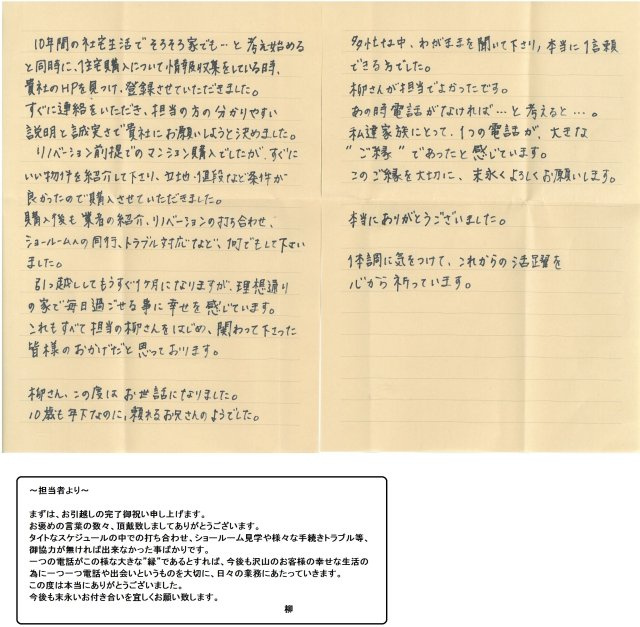 10年間の社宅生活でそろそろ家でも…と考え始める
と同時に、住宅購入について情報収集をしている時、
貴社のHPを見つけ、登録させていただきました。
すぐに連絡をいただき、担当の方の分かりやすい
説明と誠実さで貴社にお願いしようと決めました。
リノベーション前提でのマンション購入でしたが、すぐに
いい物件を紹介して下さり、立地・値段など条件が
良かったので購入させていただきました。
購入後も業者の紹介、リノベーションの打ち合わせ、
ショールームへの同行、トラブル対応など、何でもして下さい
ました。
引っ越ししてもうすぐ1ヶ月になりますが、理想通り
の家で毎日過ごせる事に幸せを感じています。
これもすべて担当の柳さんをはじめ、関わって下さった
皆様のおかげだと思っております。
柳さん、この度はお世話になりました。
10歳も年下なのに、頼れるお兄さんのようでした。
多忙な中、わがままを聞いて下さり、本当に信頼
できる方でした。
柳さんが担当でよかったです。
あの時電話がなければ…と考えると…。
私達家族にとって、1つの電話が、大きな
“ご縁”であったと感じています。
このご縁を大切に、末永くよろしくお願いします。
本当にありがとうございました。
体調に気をつけて、これからの活躍を
心から祈っています。
～担当者より～
まずは、お引越しの完了御祝い申し上げます。
お褒めの言葉の数々、頂戴致しましてありがとうございます。
タイトなスケジュールの中での打ち合わせ、ショールーム見学や様々な手続きトラブル等、
御協力が無ければ出来なかった事ばかりです。
一つの電話がこの様な大きな"縁"であるとすれば、今後も沢山のお客様の幸せな生活の
為に一つ一つ電話や出会いというものを大切に、日々の業務にあたっていきます。
この度は本当にありがとうございました。
今後も末永いお付き合いを宜しくお願い致します。
柳